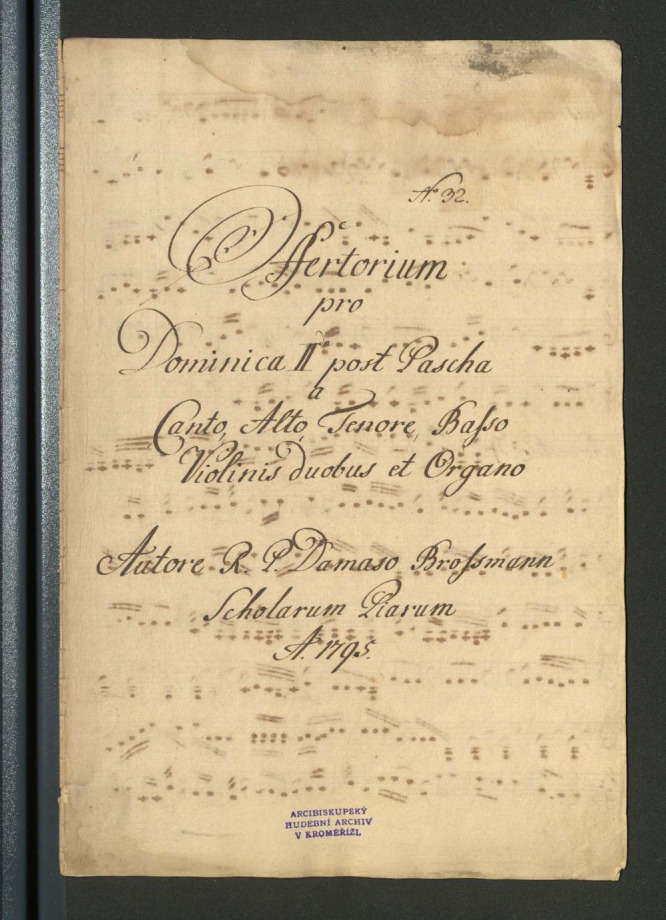 No 32.
Offertorium
pro
Dominica IIa post Pascha
a
Canto, Alto, Tenore, Baſso
Violinis duobus et Organo
Autore R. P. Damaso Broſsmann
Scholarum Piarum
Ao. 1795.
ARCIBISKUPSKÝ
HUDEBNÍ ARCHIV
V KROMĚŘÍŽI.